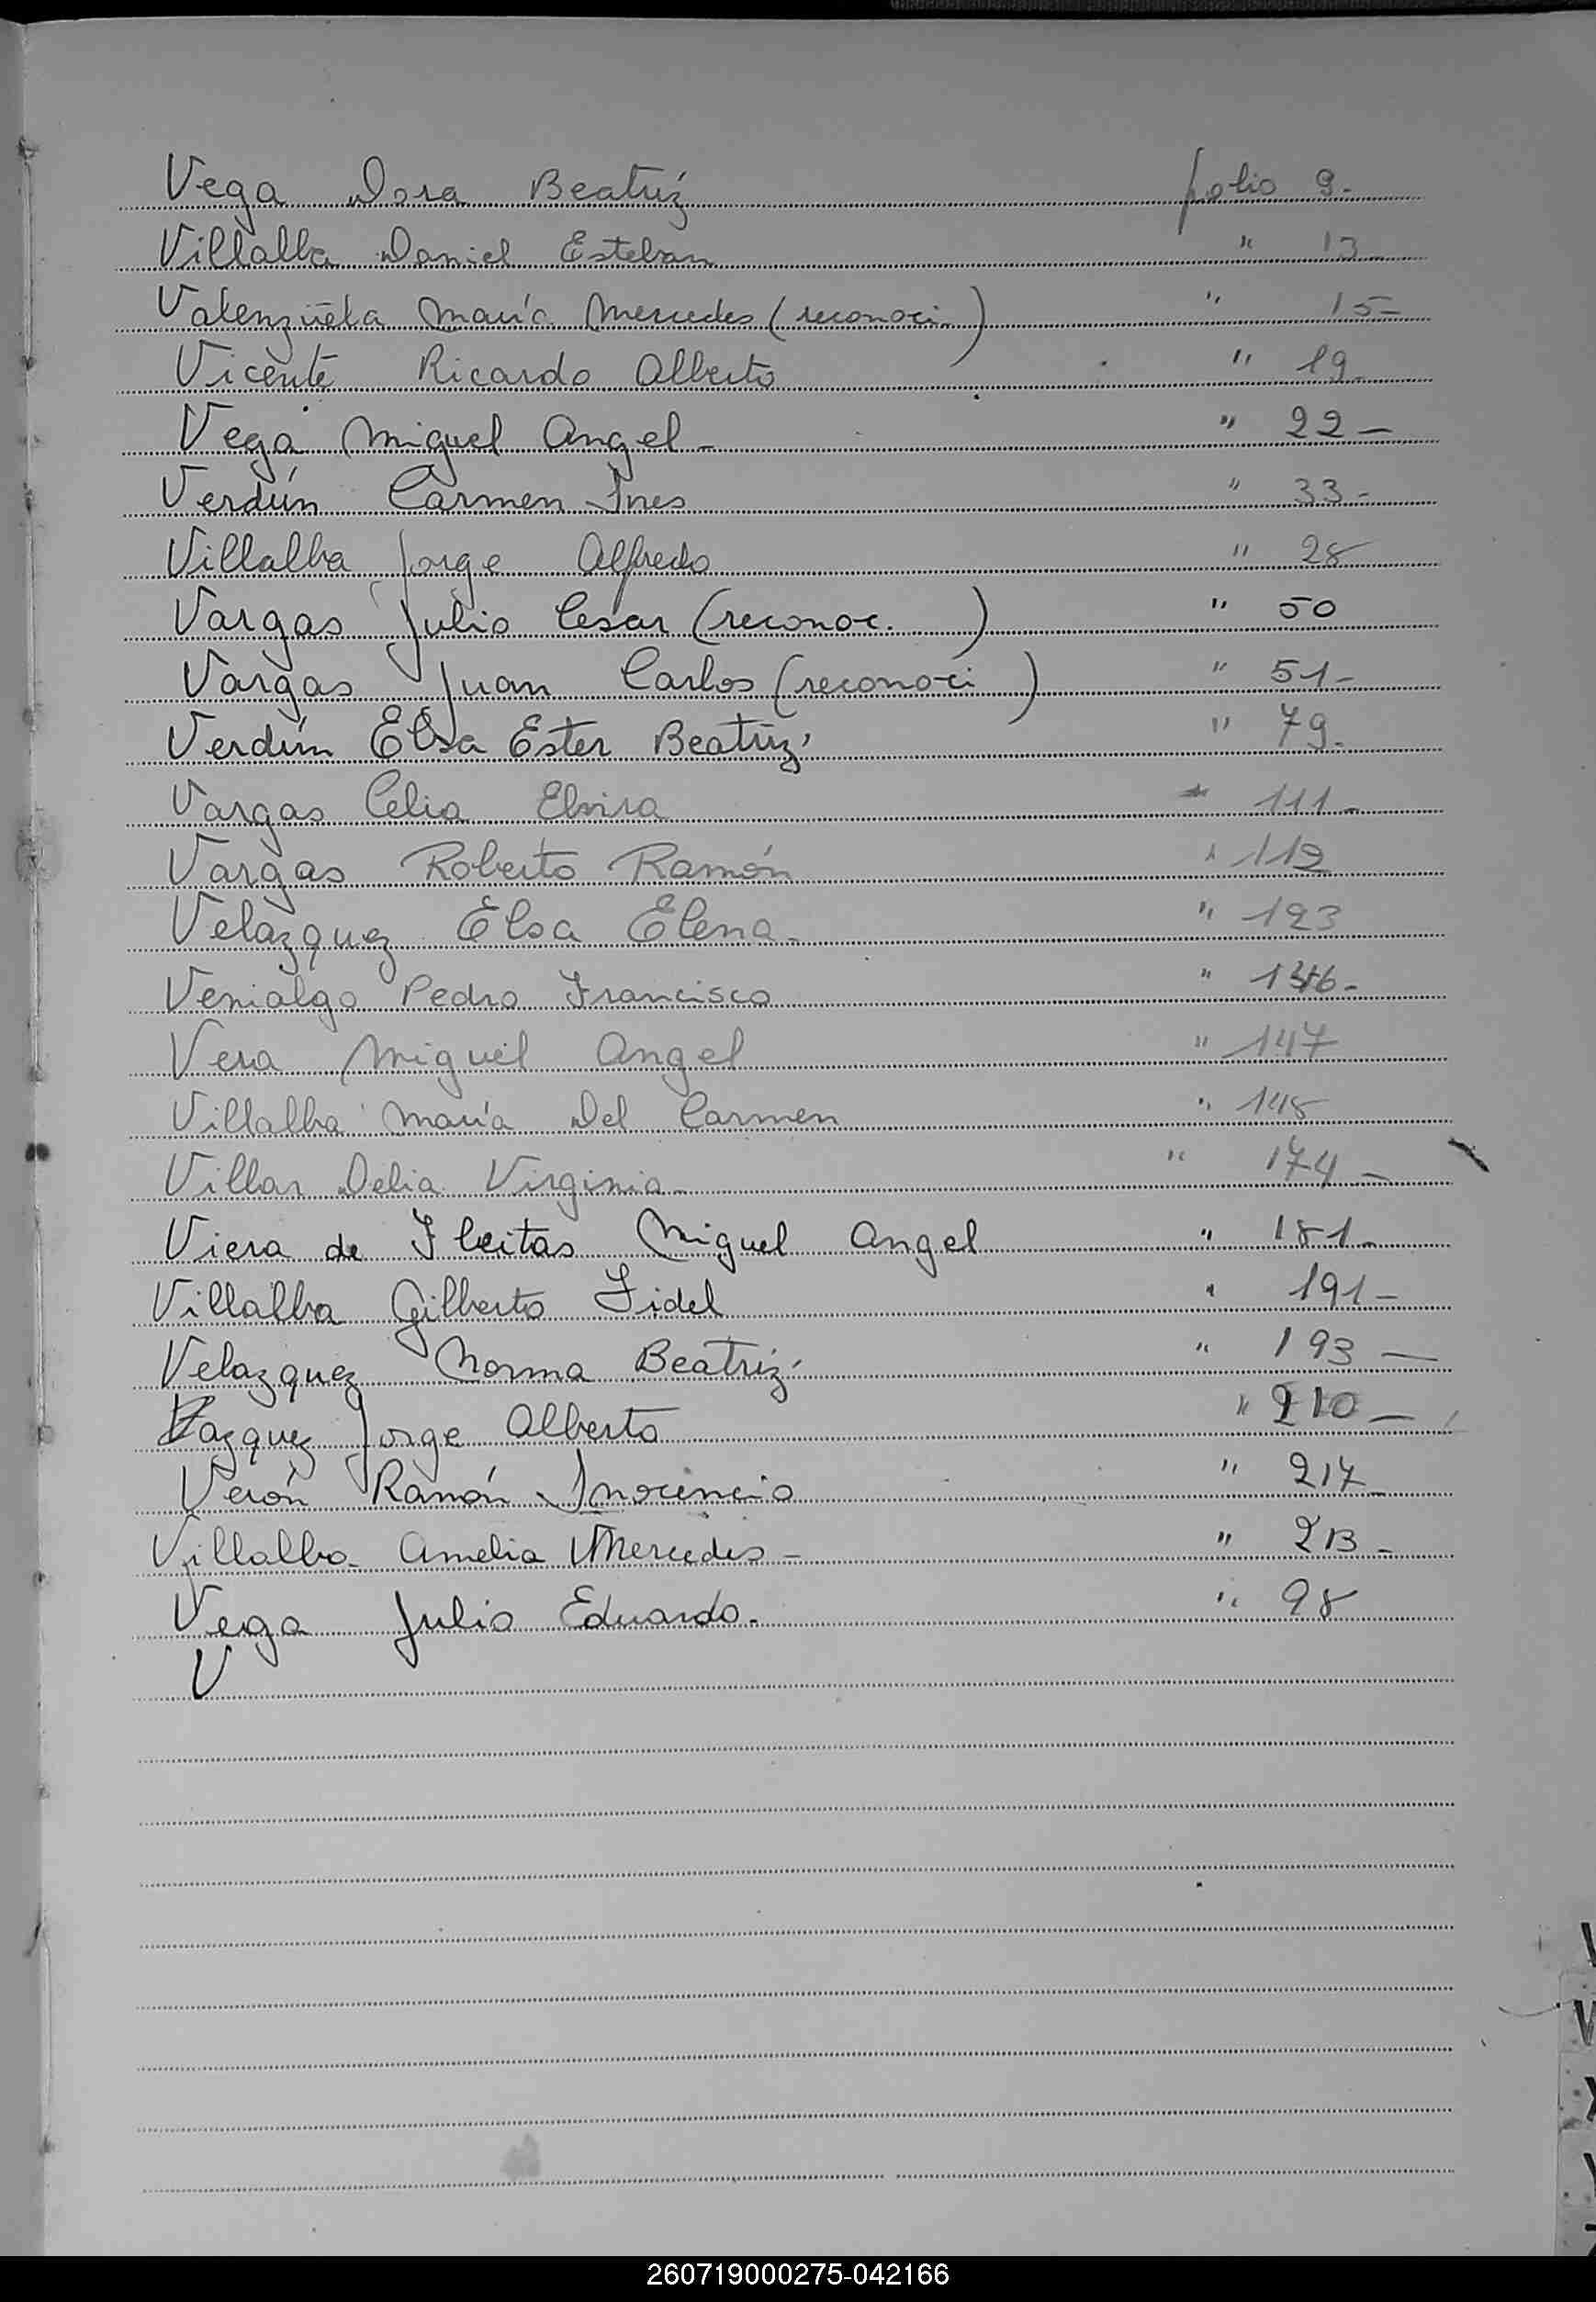 Vega Dora Beatríz folio 9.-
Villalba Daniel Esteban " 13-
Valenzuela María Mercedes (reconoci.) " 15-
Vicente Ricardo Alberto " 19-
Vega Miguel Angel - " 22-
Verdún Carmen Ines " 33-
Villalba Jorge Alfredo " 28
Vargas Julio Cesar (reconoc. ) " 50
Vargas Juan Carlos (reconoci ) " 51-
Verdún Elsa Ester Beatríz " 79-
Vargas Celia Elvira " 111-
Vargas Roberto Ramón " 112
Velazquez Elsa Elena- " 123
Venialgo Pedro Francisco "
Vera Miguel Angel " 147
Villalba María Del Carmen " 148
Villar Delia Virginia- " 174-
Viera de Fleitas Miguel Angel " 181-
Villalba Gilberto Fidel " 191-
Velazquez Norma Beatríz " 193-
Vazquez Jorge Alberto " 210-
Verón Ramón Inocencio " 217-
Villalba Amelia Mercedes - " 213-
Vega Julio Eduardo. " 98
V
260719000275-042166